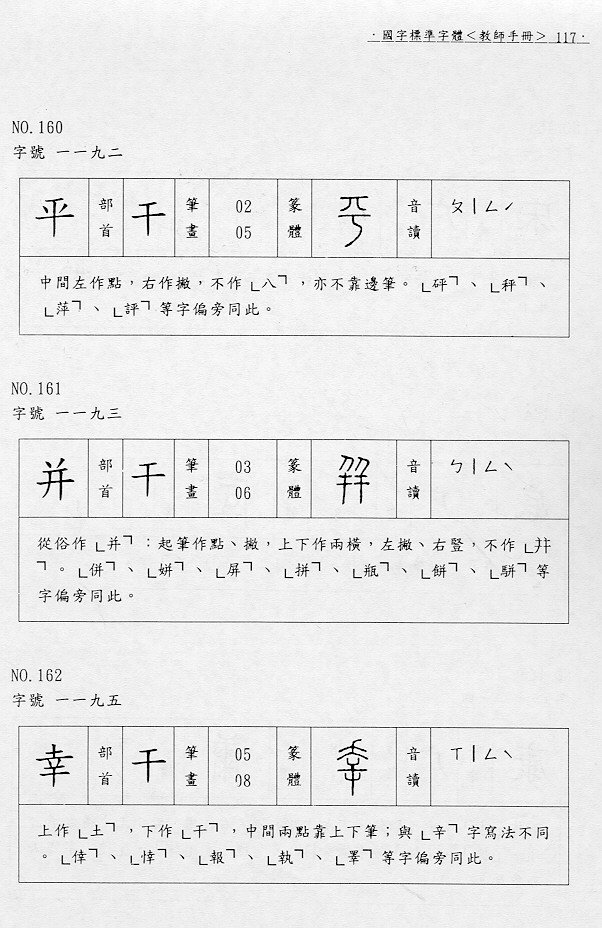 ·國字標準字體＜教師手冊＞ 117·
NO.160
字號 一一九二
平 部首 干 筆畫 02 05 篆體 音讀 ㄆㄧㄥˊ
中間左作點，右作撇，不作「八」，亦不靠邊筆。「砰」、「秤」、
「萍」、「評」等字偏旁同此。
NO.161
字號 一一九三
并 部首 干 筆畫 03 06 篆體 音讀 ㄅㄧㄥˋ
從俗作「并」：起筆作點、撇，上下作兩橫，左撇、右豎，不作「幷
」。「併」、「姘」、「屏」、「拼」、「瓶」、「餅」、「駢」等
字偏旁同此。
NO.162
字號 一一九五
幸 部首 干 筆畫 05 08 篆體 音讀 ㄒㄧㄥˋ
上作「土」，下作「干」，中間兩點靠上下筆；與「辛」字寫法不同
。「倖」、「悻」、「報」、「執」、「睪」等字偏旁同此。